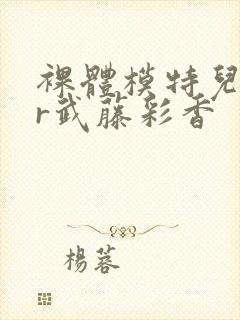 裸體模特兒
r武藤彩香
楊蓉